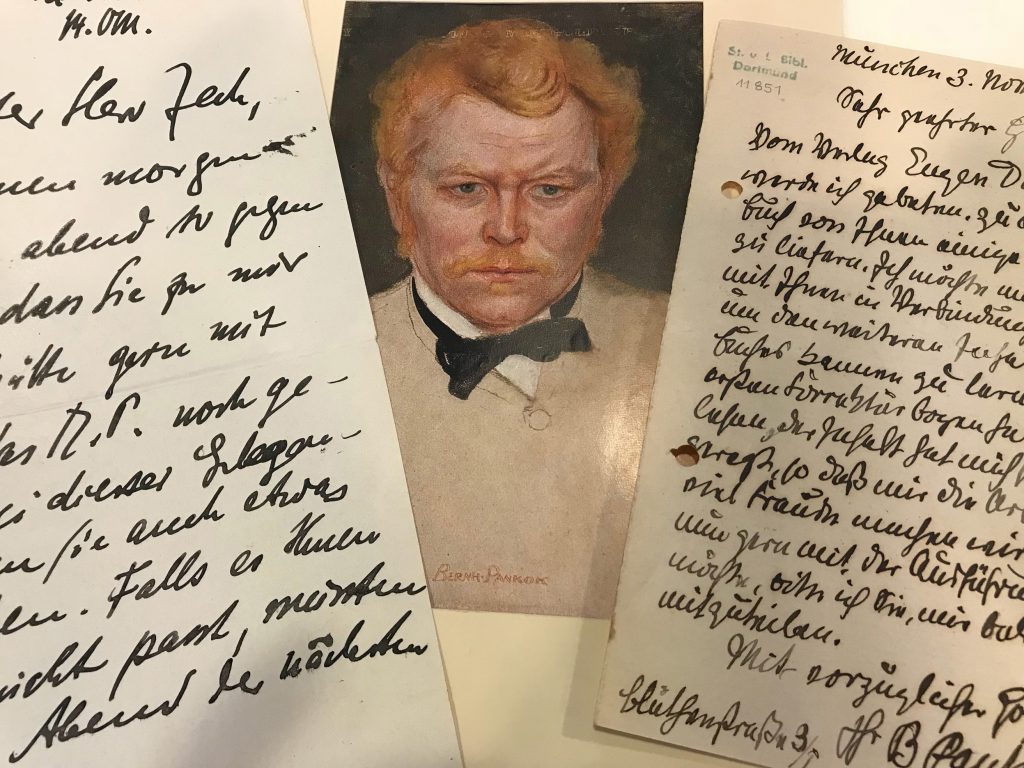 Herr Zech,
morgen
abend so gegen
dass Sie zu mir
gern mit
noch ge-
dieser Gelegen-
Sie auch etwas
Falls es Ihnen
nicht passt, müssten
Abend der nächsten
BERNH·PANKOK
St. u. L. Bibl.
Dortmund
11851
München 3. Nov
Sehr geehrter
Vom Verlag Eugen D
werde ich gebeten, zu
Buch von Ihnen einige
zu liefern. Ich möchte
mit Ihnen in Verbindung
um den weiteren Inha
Buches kennen zu lern
ersten Korrekturbogen
lesen, der Inhalt hat mich
so daß mir die Ar
viel Freude machen wird
nun gern mit der Ausführu
möchte, bitte ich Sie, mir bal
mitzuteilen.
Mit vorzüglicher
Blüthenstraße 3/
Ihr B Pank